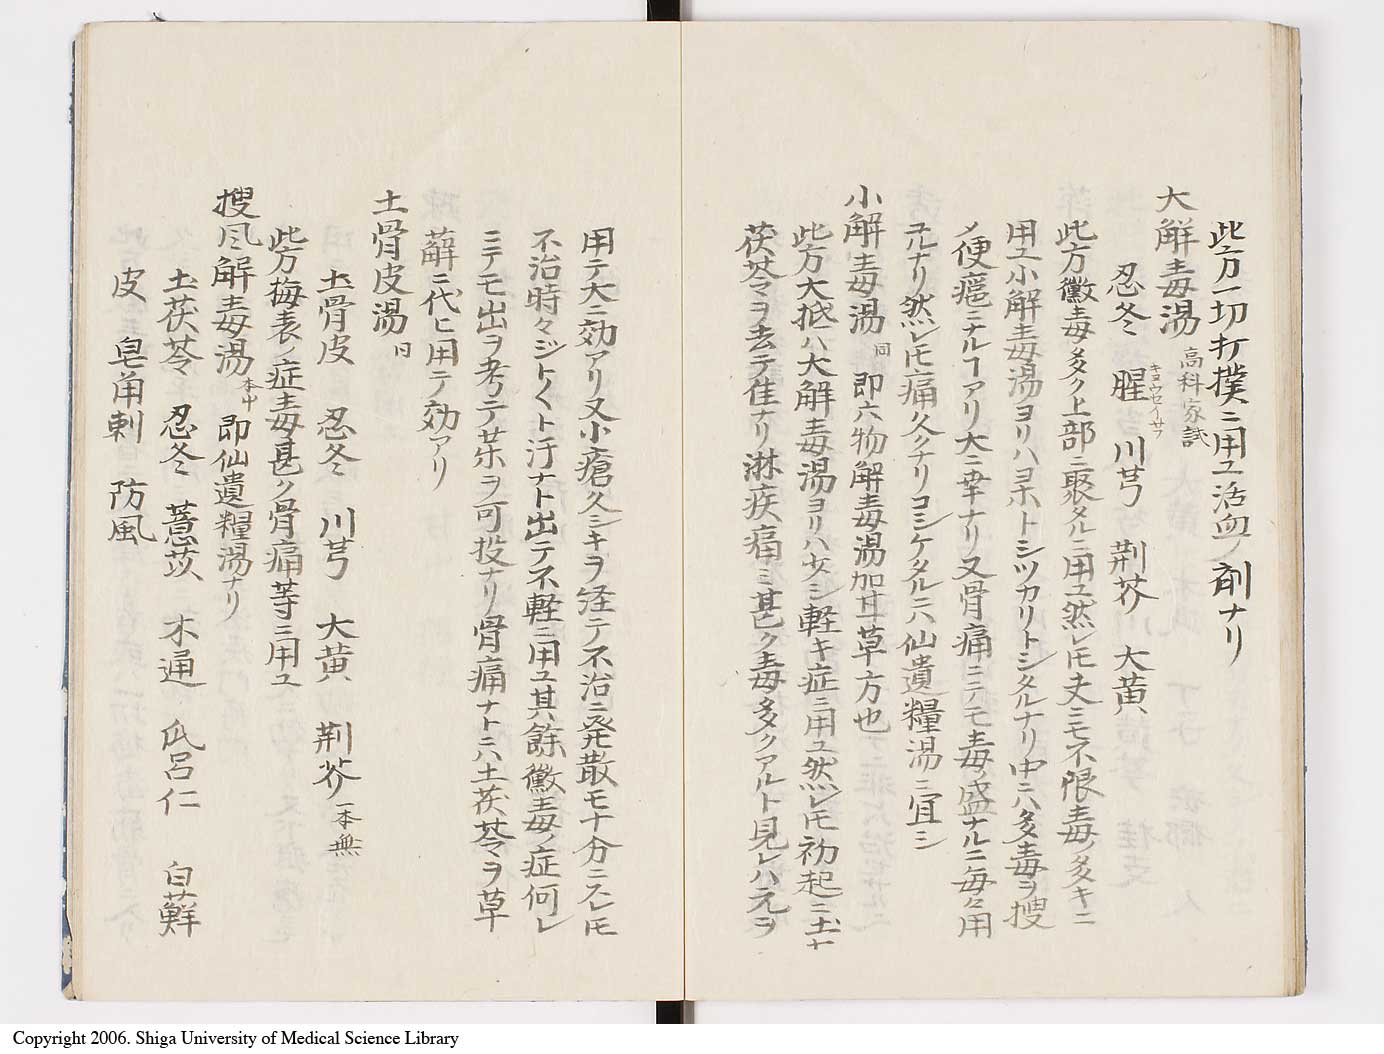 此方一切打撲ニ用ユ活血ノ剤ナリ
大解毒湯 高科家試
忍冬 腥 キヨウセイサフ 川芎 荆芥 大黄
此方黴毒多ク上部ニ聚タルニ用ユ然レ𪜈丈ミモ不限毒ノ多キニ
用ユ小解毒湯ヨリハヨホトシツカリトシタルナリ中ニハ多毒ヲ搜
ノ便瘟ニナルヿアリ大ニ幸ナリ又骨痛ニテモ毒ノ盛ナルニ毎々用
ユルナリ然レ𪜈痛久クナリコシケタルニハ仙遺糧湯ニ宜シ
小解毒湯 同 即六物解毒湯加甘草方也
此方大抵ハ大解毒湯ヨリハ少シ軽キ症ニ用ユ然レ𪜈初起ニハ土
茯苓ヲ去テ佳ナリ淋疾痛ミ甚ク毒多クアルト見レハ兀ヲ
用テ大ニ効アリ又小瘡久シキヲ経テ不治ニ発散モ十分ニスレ𪜈
不治時々ジトくト汁ナト出テ不軽ニ用ユ其餘黴毒ノ症何レ
ニテモ出ヲ考テ茱ヲ可投ナリ骨痛ナトニハ土茯苓ヲ草
薢ニ代ヒ用テ効アリ
土骨皮湯 同
土骨皮 忍冬 川芎 大黄 荆芥 一本無
此方梅表ノ症毒甚ク骨痛等ニ用ユ
搜风解毒湯 本中 即仙遺糧湯ナリ
土茯苓 忍冬 薏苡 木通 瓜呂仁 白蘚
皮 皂角刺 防風
Copyright 2006. Shiga University of Medical Science Library